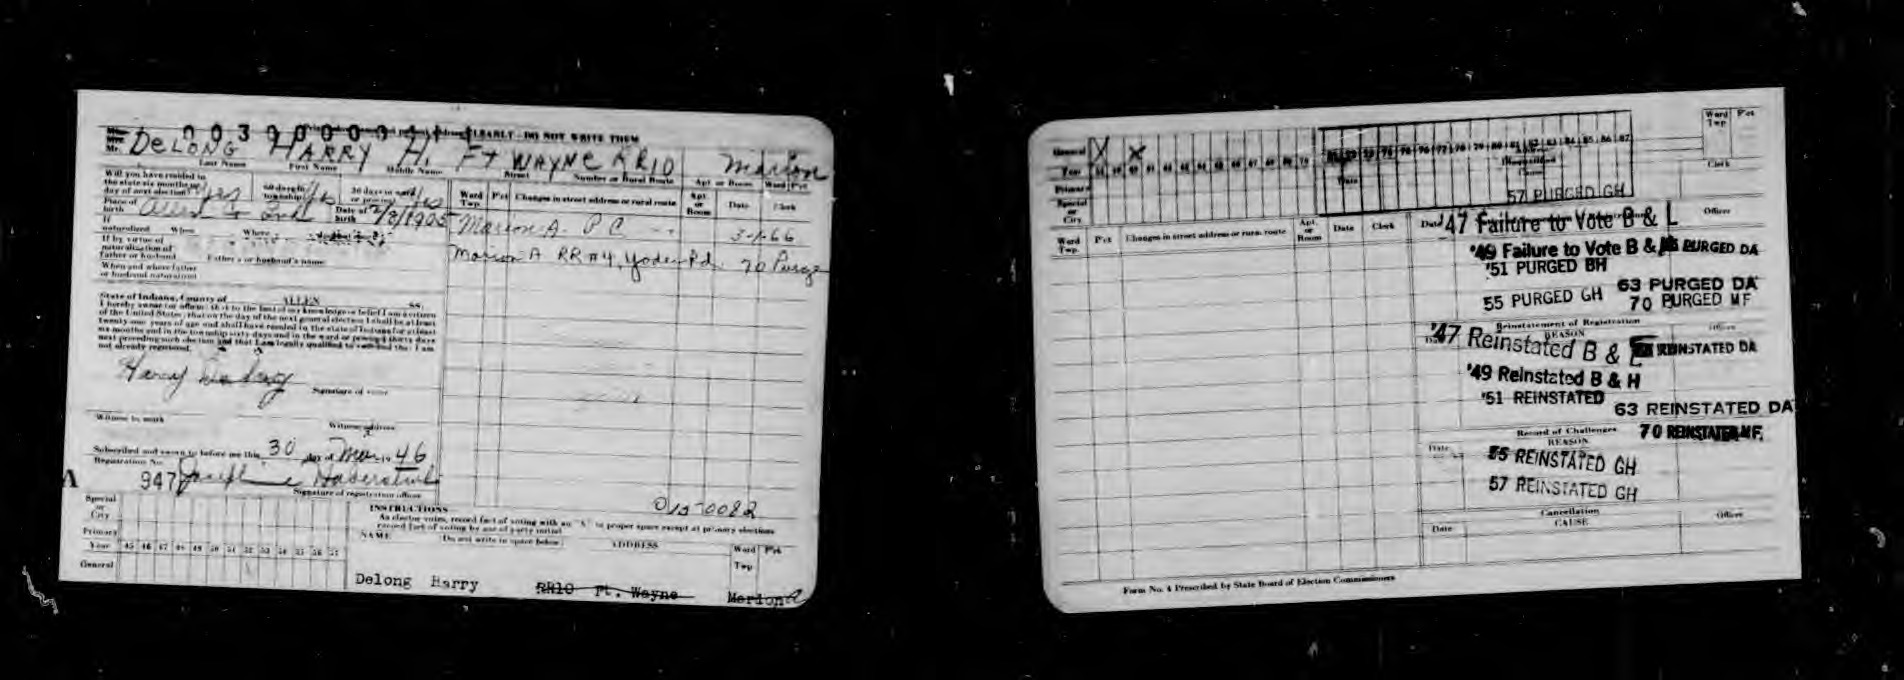 CLEARLY - DO NOT WRITE THEM
Mr. DeLONG HARRY H. Ft WAYNE RR10 Marion
Last Name First Name Middle Name Street Number or Rural Route Apt. or Room Ward Pct
Will you have resided in
the state six months on
day of next election? yes 60 days in township? yes 30 days in ward or precinct yes
Place of birth Allen Co Ind. Date of birth 2/3/1905
Ward Twp. Pct Changes in street address or rural route Apt. or Room Date Clerk
If naturalized When Where
Marion A. P C 3-1-66
If by virtue of
naturalization of
father or husband Father's or husband's name
Marion A RR #4, Yoder Rd. 70 Purge
When and where father
or husband naturalized
State of Indiana, County of ALLEN ss.
I hereby swear (or affirm) that to the best of my knowledge or belief I am a citizen
of the United States; that on the day of the next general election I shall be at least
twenty-one years of age and shall have resided in the state of Indiana for at least
six months and in the township sixty days and in the ward or precinct thirty days
next preceding such election and that I am legally qualified to vote and that I am
not already registered.
Harry DeLong
Signature of voter
Witness to mark
Witness address
Subscribed and sworn to before me this 30 day of Mar 19 46
Registration No.
A 947 Josephine
Signature of registration officer
0150082
Special or City
Primary
Year 45 46 47 48 49 50 51 52 53 54 55 56 57
General
INSTRUCTIONS
An elector votes, record fact of voting with an "X" in proper space except at primary elections
record fact of voting by use of party initial
NAME Do not write in space below ADDRESS Ward Twp Pct
Delong Harry RR10 Ft. Wayne Marion A
General X X
Year 58 59 60 61 62 63 64 65 66 67 68 69 70 75 76 77 78 79 80 81 82 83 84 85 86 87
Ward Twp Pct
Primary
Clerk
Special or City
Date Cause
57 PURGED GH
Ward Twp. Pct Changes in street address or rural route Apt. or Room Date Clerk Date Officer
'47 Failure to Vote B & L
'49 Failure to Vote B & H PURGED DA
'51 PURGED BH
63 PURGED DA
55 PURGED GH 70 PURGED MF
Reinstatement of Registration
REASON Officer
'47 Reinstated B & L REINSTATED DA
'49 Reinstated B & H
'51 REINSTATED
63 REINSTATED DA
Record of Challenges 70 REINSTATED MF.
Date REASON
55 REINSTATED GH
57 REINSTATED GH
Cancellation
Date CAUSE Officer
Form No. 4 Prescribed by State Board of Election Commissioners